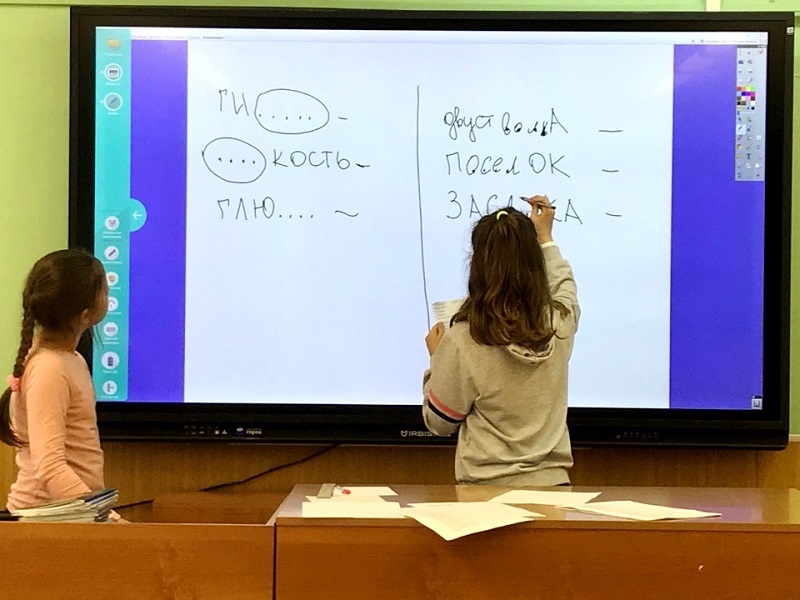 ГИ..... –
.... КОСТЬ –
ГЛЮ.... ~
двустволкА –
ПОСЕЛОК –
IRBIS